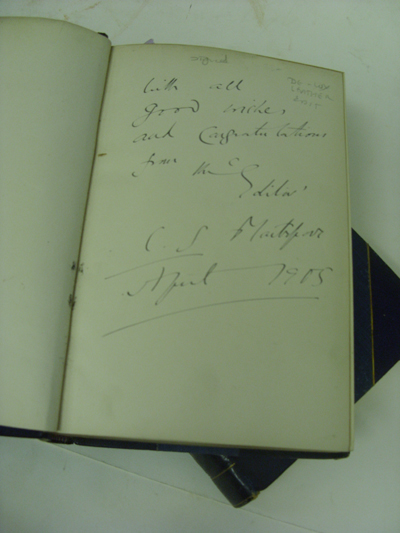 original
With all
good wishes
and Congratulations
from the
Editor
C. S.
April 1905